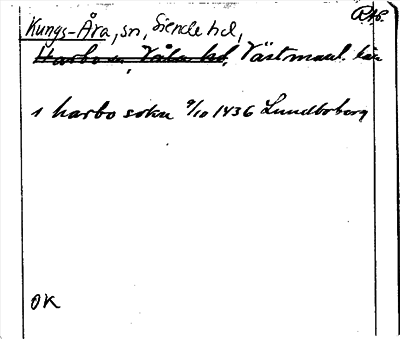 R.A.P.
Kungs-Åra, sn, Siende hd,
Harbo sn, Våla hd, Västmanl. län
1 harbo sokn 9/10 1436 Lundboborg
OK